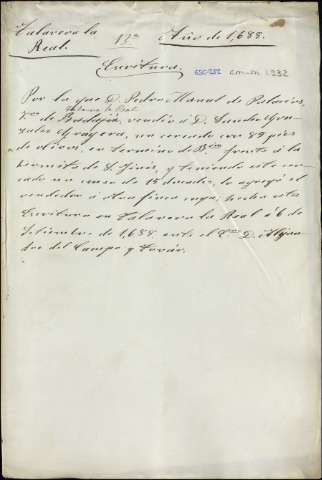 Talavera la Real. 13º Año de 1,688.
Escritura.
Por la que D. Pedro Manuel de Palacios,
vno de Badajoz, vendió a D. Sancho Gon-
zales Grajera, un cercado con 89 pies
de olivos, en termino de frente á la
hermita de S. Ginés, y teniendo este cer-
cado un censo de 15 ducados, lo agregó el
vendedor a otra finca suya; hecha esta
Escritura en Talavera la Real á 6 de
Setiembre de 1,688 ante el Esno D. Alejan-
dro del Campo y Továr.